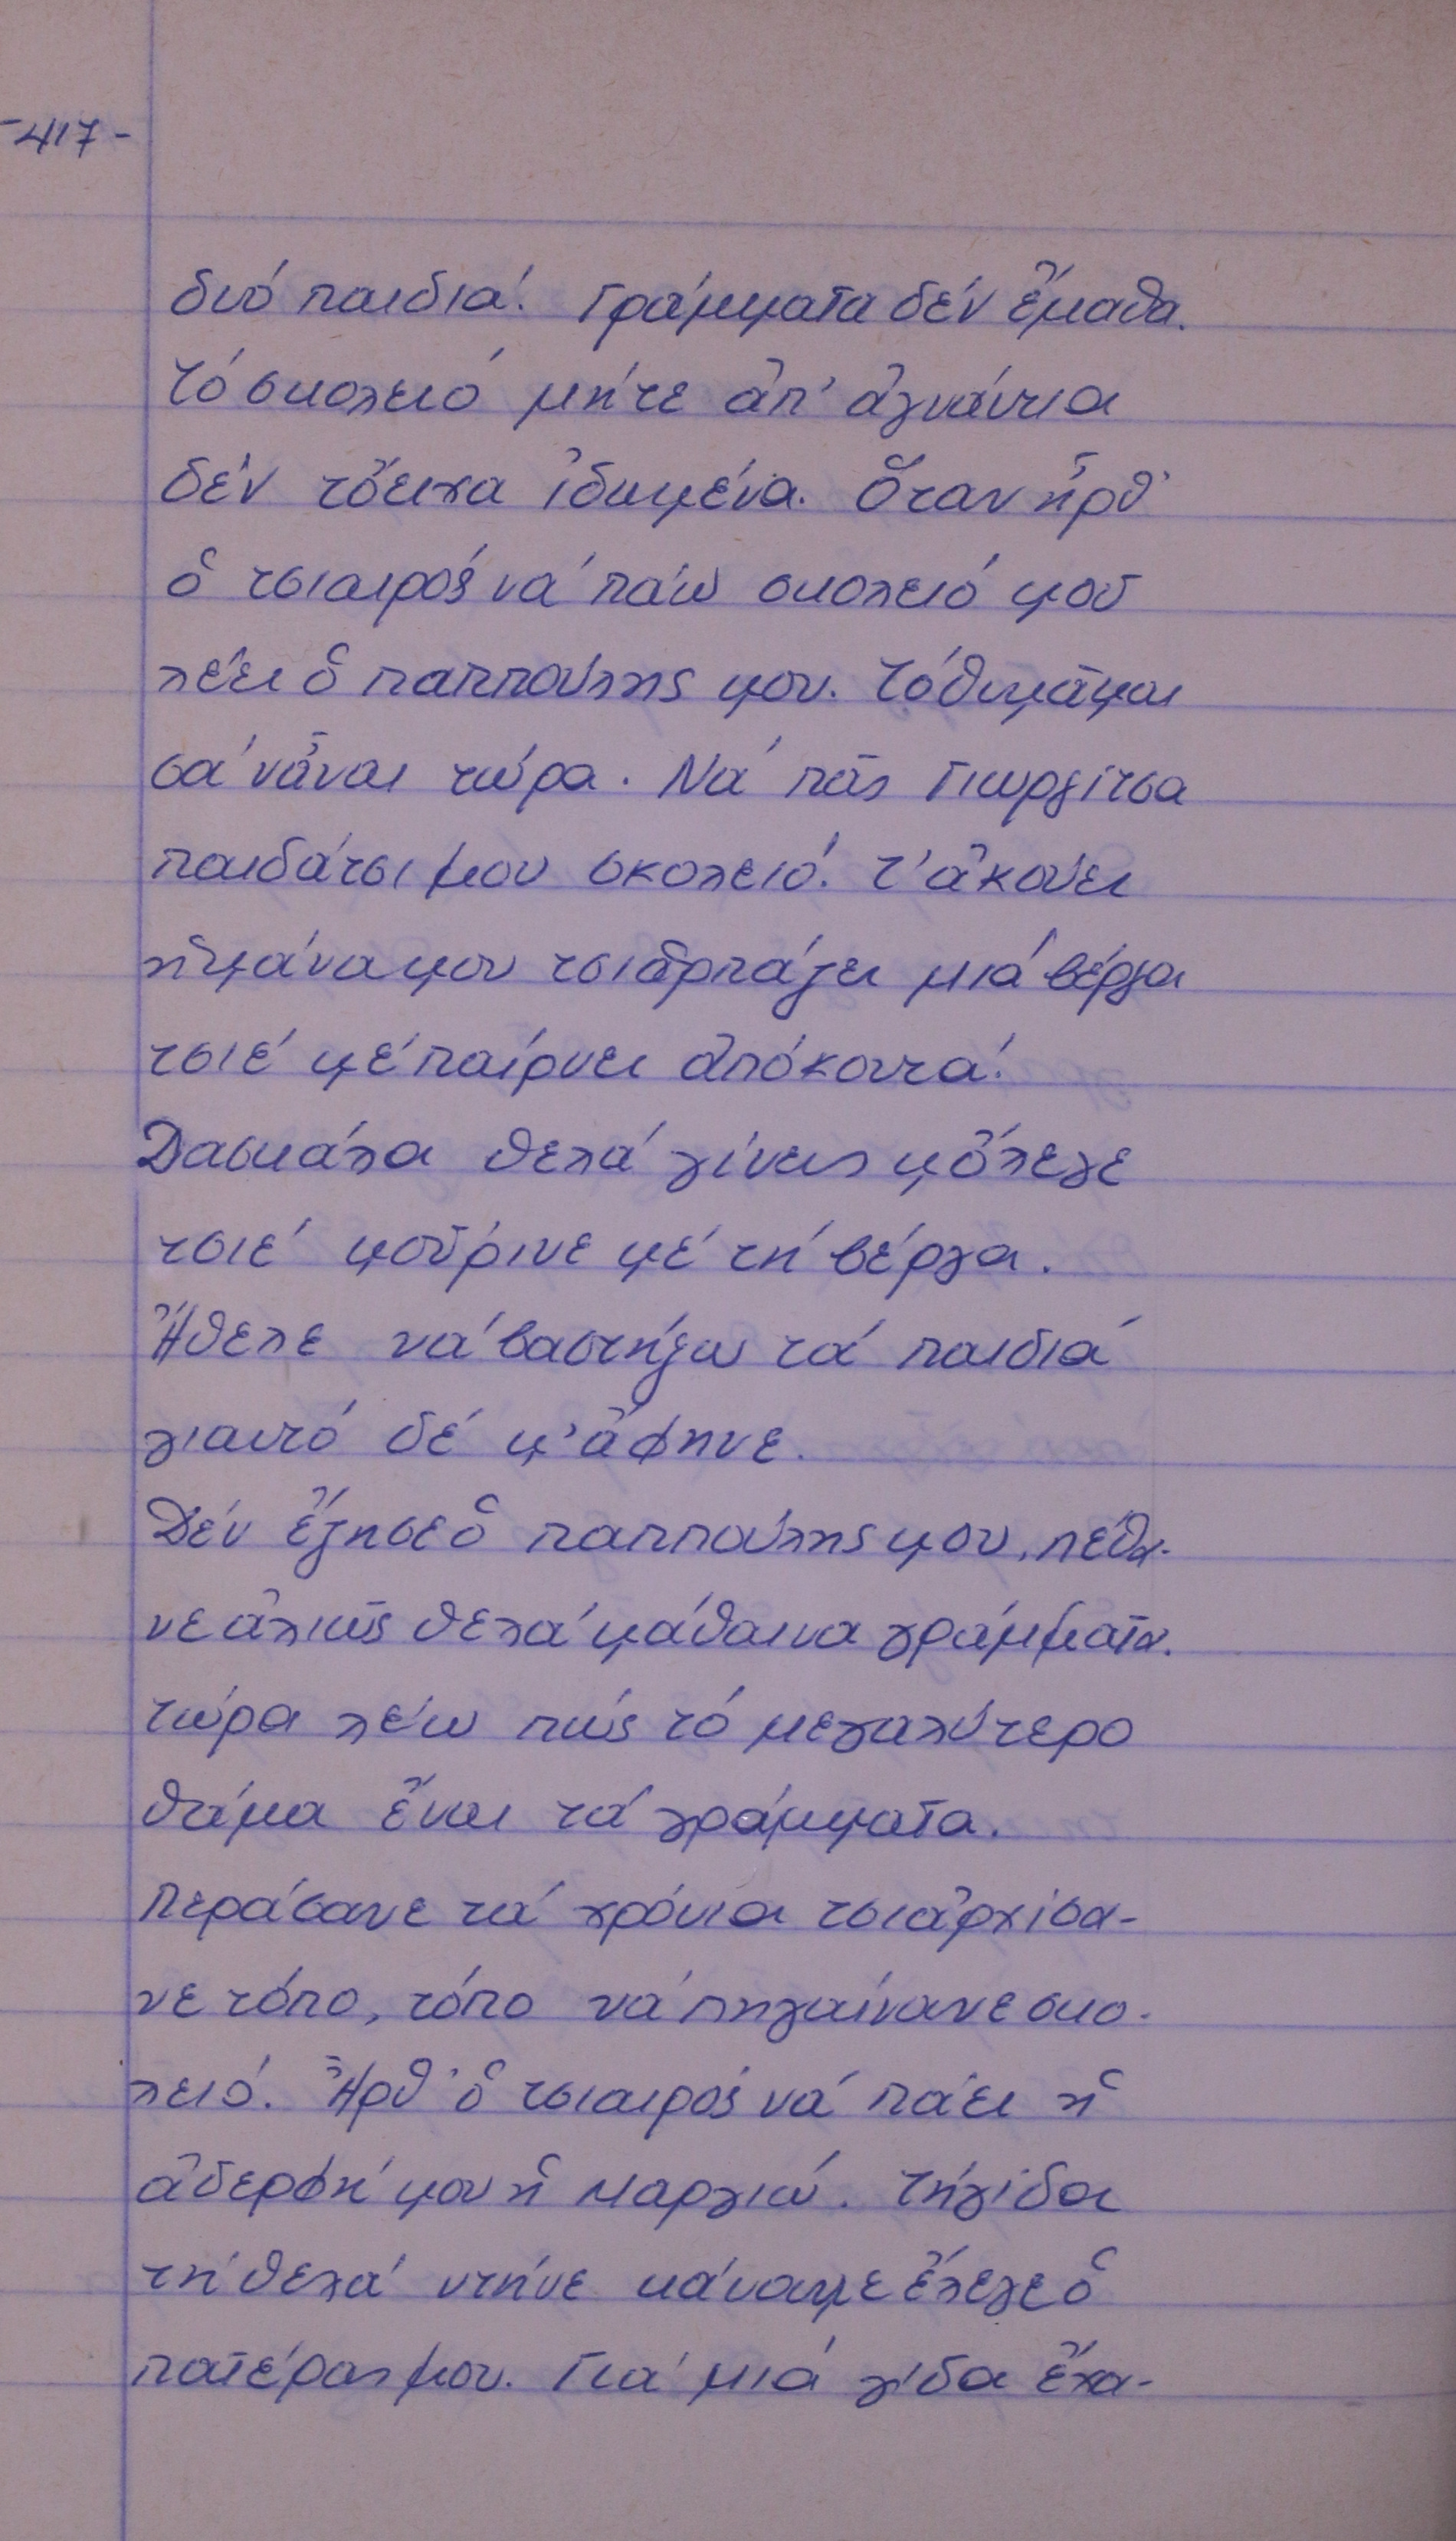 -417-
δυό παιδιά. Γράμματα δέν ἔμαθα.
Τό σκολειό μήτε ἀπ' ἀγνάντια
δέν τὄειχα ἰδωμένα. Ὅταν ἦρθ'
ὁ τσιαιρός νά πάω σκολειό μοῦ
λέει ὁ παππούλης μου. Τό θυμᾶμαι
σά νἆναι τώρα. Νά πᾶς Γιωργίτσα
παιδάτσι μου σκολειό. Τ' ἀκούει
ἡ μάνα μου τσι ἁρπάζει μιά βέργα
τσιέ μέ παίρνει ἀπόκοντά.
Δασκάλα θελά γίνεις μὄλεγε
τσιέ μοὔρινε μέ τή βέργα.
Ἤθελε νά βαστήξω τά παιδιά
γιαυτό δέ μ' ἄφηνε.
Δέν ἔζησε ὁ παππούλης μου, πέθα-
νε ἀλιῶς θελά μάθαινα γράμματα.
Τώρα λέω πώς τό μεγαλύτερο
θάμα ἔναι τά γράμματα.
Περάσανε τά χρόνια τσι ἀρχίσα-
νε τόπο, τόπο νά πηγαίνανε σκο-
λειό. Ἦρθ' ὁ τσιαιρός νά πάει ἡ
ἀδερφή μου ἡ Μαργιώ. Τή γίδα
τή θελά ντήνε κάναμε ἔλεγε ὁ
πατέρας μου. Γιά μιά γίδα ἔχα-